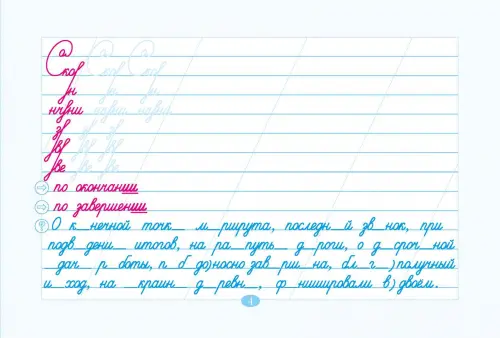 а
Скоб Скоб Скоб
ун ун ун
нчвни нчвни нчвни
зв
⇨ по окончании
⇨ по завершении
О к_нечной точк_ м_ршрута, последн_й зв_нок, при
подв_дени_ итогов, на ра_путь_ д_роги, о_д_сроч_ной
_дач_ р_боты, п_б_до)носно зав_рши_на, бл_г_)получный
и_ход, на_краин_ д_ревн_, ф_нишировали в)двоём.
4